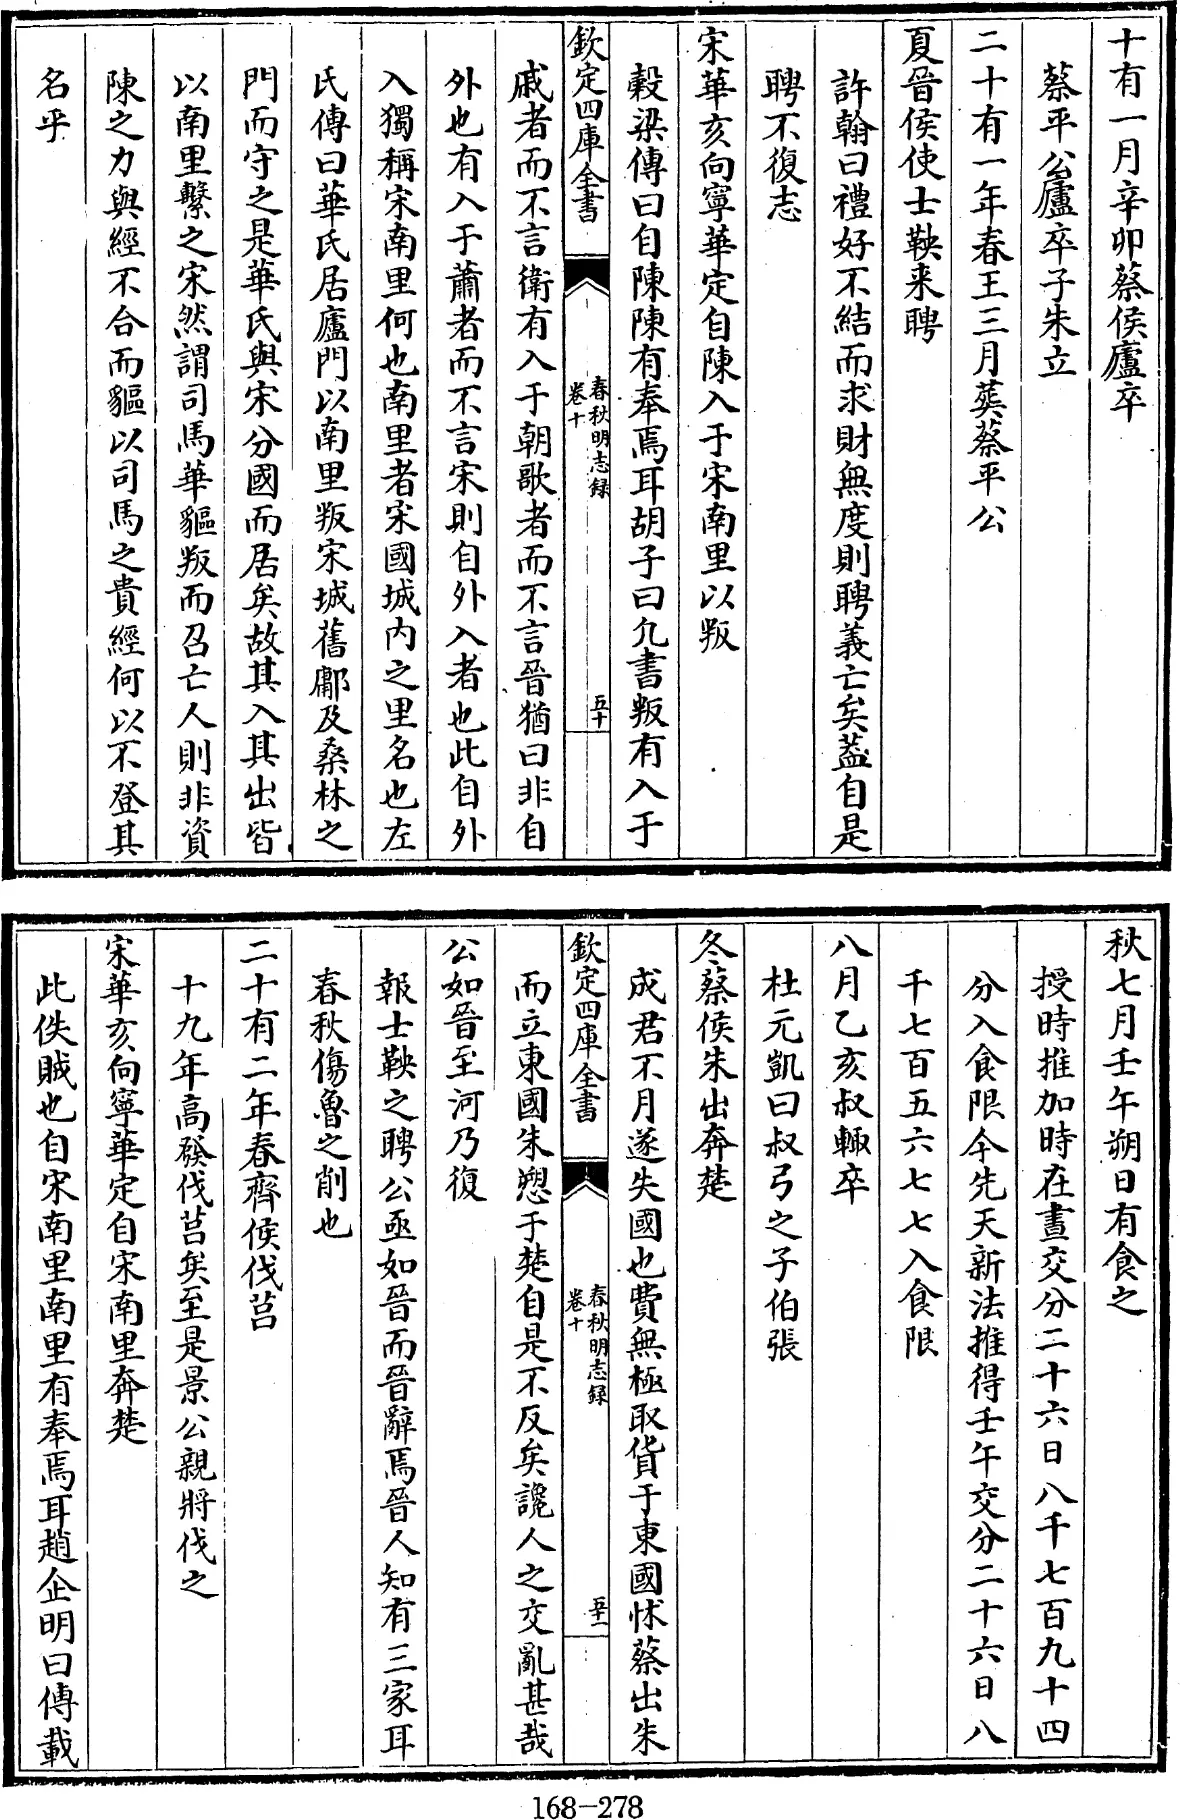 十有一月辛卯蔡侯廬卒
蔡平公廬卒子朱立
二十有一年春王三月葬蔡平公
夏晉侯使士鞅来聘
許翰曰禮好不結而求財無度則聘義亡矣葢自是
聘不復志
宋華亥向寧華定自陳入于宋南里以叛
穀梁傳曰自陳陳有奉焉耳胡子曰凢書叛有入于
欽定四庫全書
春秋明志録
卷十
五十
戚者而不言衛有入于朝歌者而不言晉猶曰非自
外也有入于蕭者而不言宋則自外入者也此自外
入獨稱宋南里何也南里者宋國城内之里名也左
氏傳曰華氏居廬門以南里叛宋城舊鄘及桑林之
門而守之是華氏與宋分國而居矣故其入其出皆
以南里繫之宋然謂司馬華貙叛而召亡人則非資
陳之力與經不合而貙以司馬之貴經何以不登其
名乎
秋七月壬午朔日有食之
授時推加時在晝交分二十六日八千七百九十四
分入食限今先天新法推得壬午交分二十六日八
千七百五六七七入食限
八月乙亥叔輙卒
杜元凱曰叔弓之子伯張
冬蔡侯朱出奔楚
成君不月遂失國也費無極取貨于東國怵蔡出朱
欽定四庫全書
春秋明志録
卷十
五十一
而立東國朱愬于楚自是不反矣讒人之交亂甚哉
公如晉至河乃復
報士鞅之聘公亟如晉而晉辭焉晉人知有三家耳
春秋傷魯之削也
二十有二年春齊侯伐莒
十九年高發伐莒矣至是景公親將伐之
宋華亥向寧華定自宋南里奔楚
此佚賊也自宋南里南里有奉焉耳趙企明曰傳載
168-278